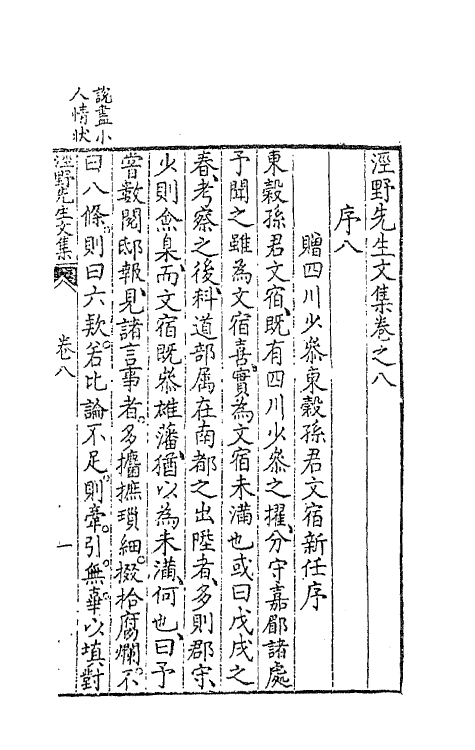 涇野先生文集卷之八
序八
贈四川少叅東穀孫君文宿新任序
東穀孫君文宿既有四川少叅之擢分守嘉郿諸處
予聞之雖為文宿喜實為文宿未滿也或曰戊戌之
春考察之後科道部属在南都之出陞者多則郡守
少則僉臬而文宿既叅雄藩猶以為未滿何也曰予
嘗數閱邸報見諸言事者多攟摭瑣細掇拾腐爛不
曰八條則曰六欵若比論不足則牽引無辜以填對
說盡小
人情狀
涇野先生文集
卷八
一